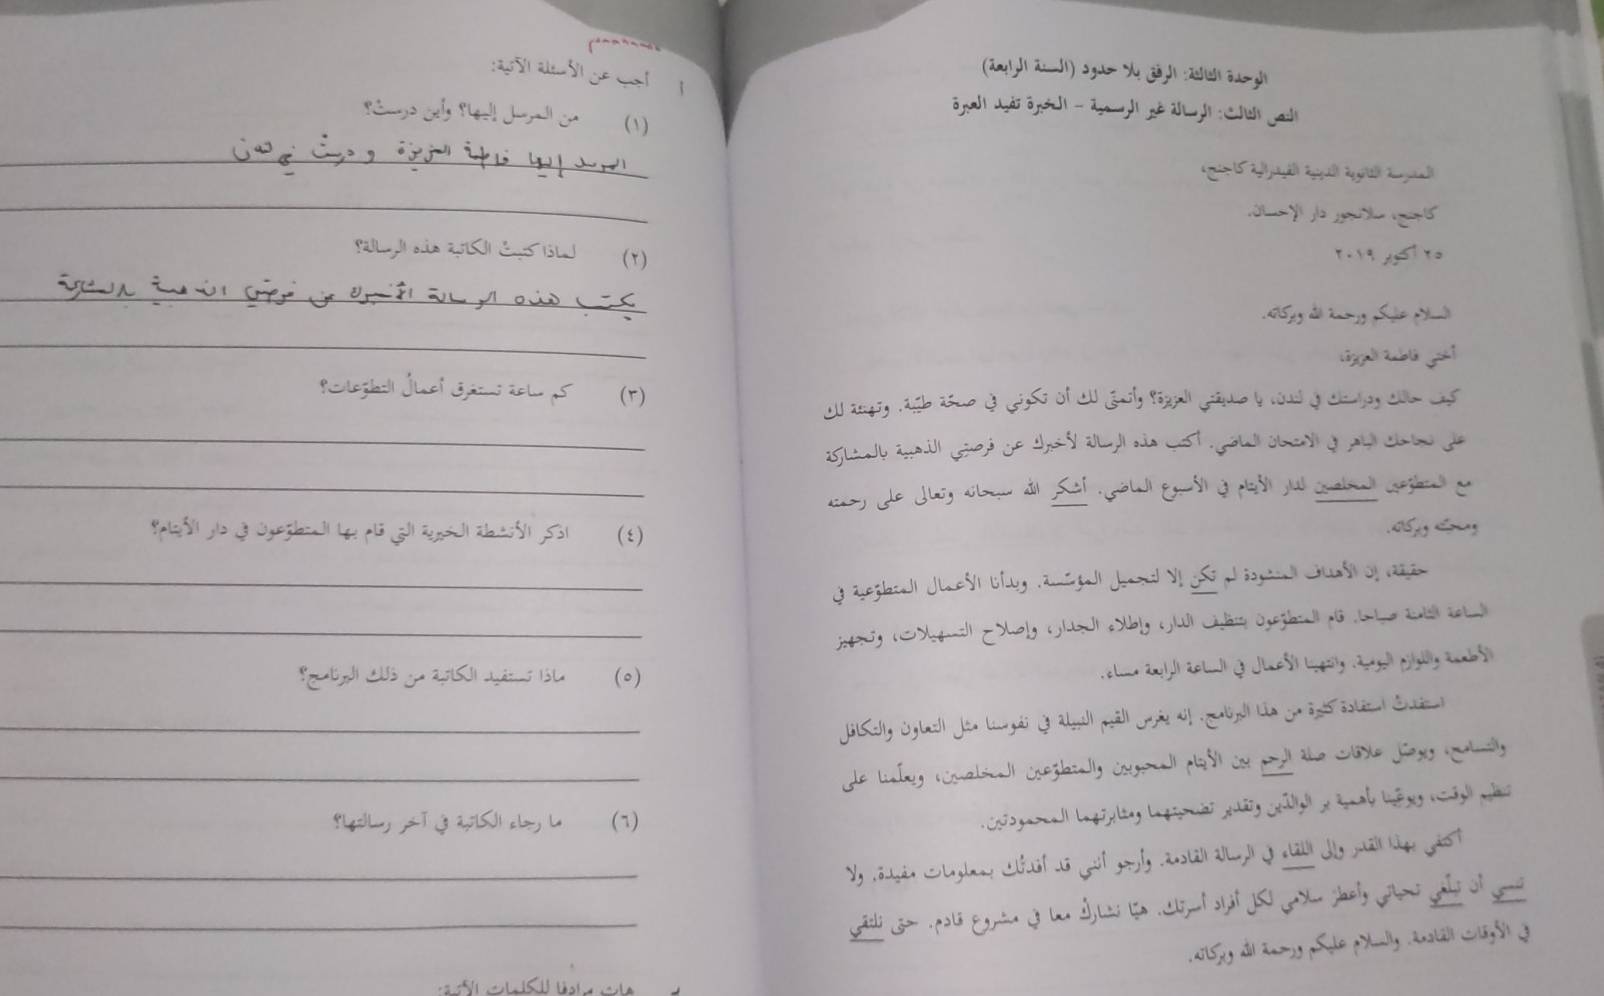 الوحدة الثالثة: الرفق بلا حدود (السنة الرابعة)
النص الثالث: الرسالة غير الرسمية – الخبرة تفيد العبرة
المدرسة الثانوية الدينية الفيدرالية كاجنج،
كاجنج، سلانجور دار الإحسان.
٢٥ أكتوبر ٢٠١٩
السلام عليكم ورحمة الله وبركاته.
أختي فاطمة العزيزة،
كيف حالك ودراستك في لندن، يا صديقتي العزيزة؟ وأتمنّى لك أن تكوني في صحّة طيّبة. وتهنئة لك
على نجاحك الباهر في الامتحان الماضي. أكتب هذه الرسالة لأخبرك عن فرصتِي الذهبية بالمشاركة
مع المتطوّعين المخلصين لدار الأيتام في الأسبوع الماضي. أشكر الله سبحانه وتعالى على رحمته
ومحبّته وبركاته.
حقيقة، إن الأهداف المنشودة لم تكن إلا لتجميل المؤسّسة. وبدأنا الأعمال التطوّعية في
الساعة الثامنة صباحا. قام المتطوّعون بتنظيف الدار، وإطلاء الجدار، وإصلاح التسهيلات، وتجهيز
الأطعمة واللوازم اليومية. وانتهينا الأعمال في الساعة الرابعة مساء.
استفدتُ استفادة كثيرة من هذا البرنامج. إنه يغرس القيم النبيلة في نفوسنا مثل التعاون والتكافل
والتسامح، ويوصّل علاقات صلة الرحم بين الأيتام المحبوبين والمتطوّعين المخلصين، ويعلّمنا على
تنظيم الوقت، ويوعّينا بأهمية بر الوالدَين وتقدير تضحيتهما ومثابرتهما المحمودتين.
أكتفي بهذا القدر وإلى اللقاء في الرسالة القادمة. وأرجو أنني قد أفدتُك بمعلومات مفيدة. ولا
تنسي أن تبلّغي تحياتي وأعطرَ سلامي لكل أفراد أسرتك. هيّا نشاركْ معا في مشروع قادم. حتى نلتقي
في الأوقات القادمة. والسلام عليكم ورحمة الله وبركاته.
أ أجب عن الأسئلة الآتية:
(١) من المرسل إليها؟ وأين درستْ؟
المرسل إليها فاطمة العزيزة و درستْ في لندن
(٢) لماذا كتبتْ الكاتبة هذه الرسالة؟
يكتب هذه الرسالة لأخبرك عن فرصتي الذهبية بالمشاركة
(٣) كم ساعة تستغرق أعمالُ التطوّعات؟
(٤) اذكر الأنشطة الخيرية التي قام بها المتطوّعون في دار الأيتام؟
(٥) ماذا تستفيد الكاتبة من ذلك البرنامج؟
(٦) ما رجاء الكاتبة في آخر رسالتها؟
هات مرادفا للكلمات الآتية: